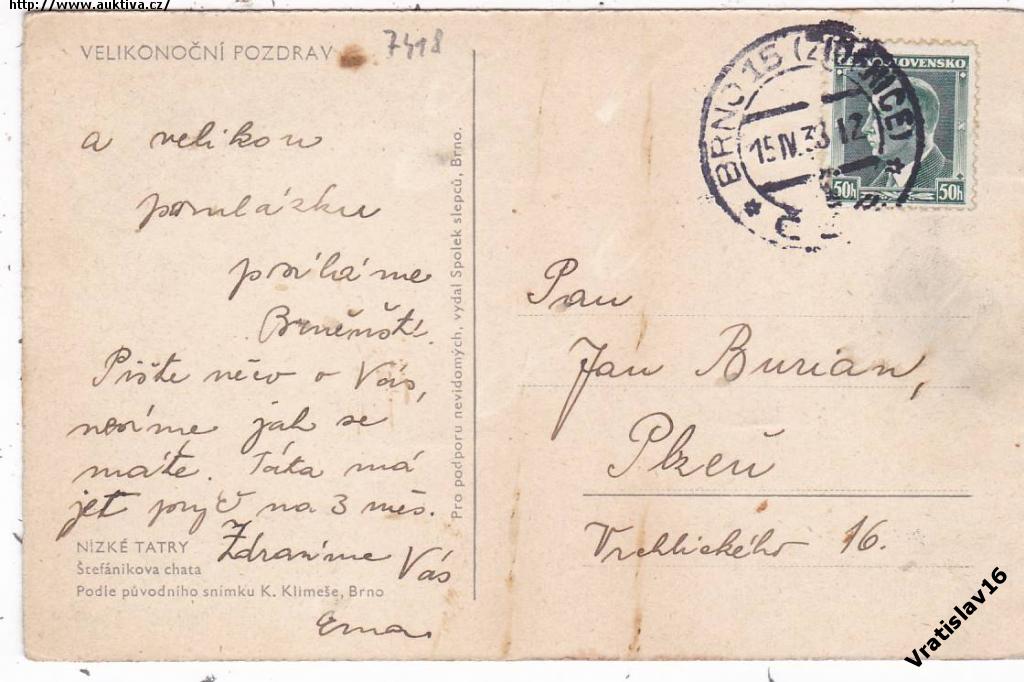 http://www.auktiva.cz/
VELIKONOČNÍ POZDRAV
7418
a velikou
pomlázku
posíláme
Brněnští.
Píšte něco o Vás,
nevíme jak se
máte. Táta má
jet pryč na 3 měs.
Zdravíme Vás
Erna
NÍZKÉ TATRY
Štefánikova chata
Podle původního snímku K. Klimeše, Brno
Pro podporu nevidomých, vydal Spolek slepců, Brno.
BRNO 15 (ŽIDENICE)
15 IV. 38 12
50h 50h
Pan
Jan Burian,
Plzeň
Vrchlického 16.
Vratislav16